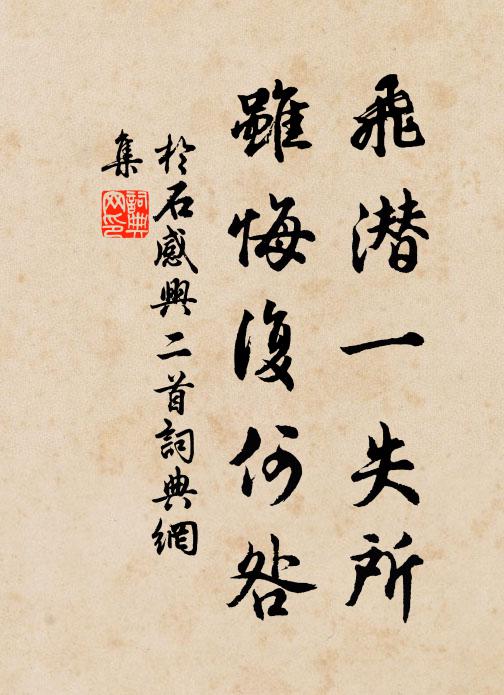 飛潜一失所
雖悔復何咎
於石感興二首詞典網
集
詞典
网印